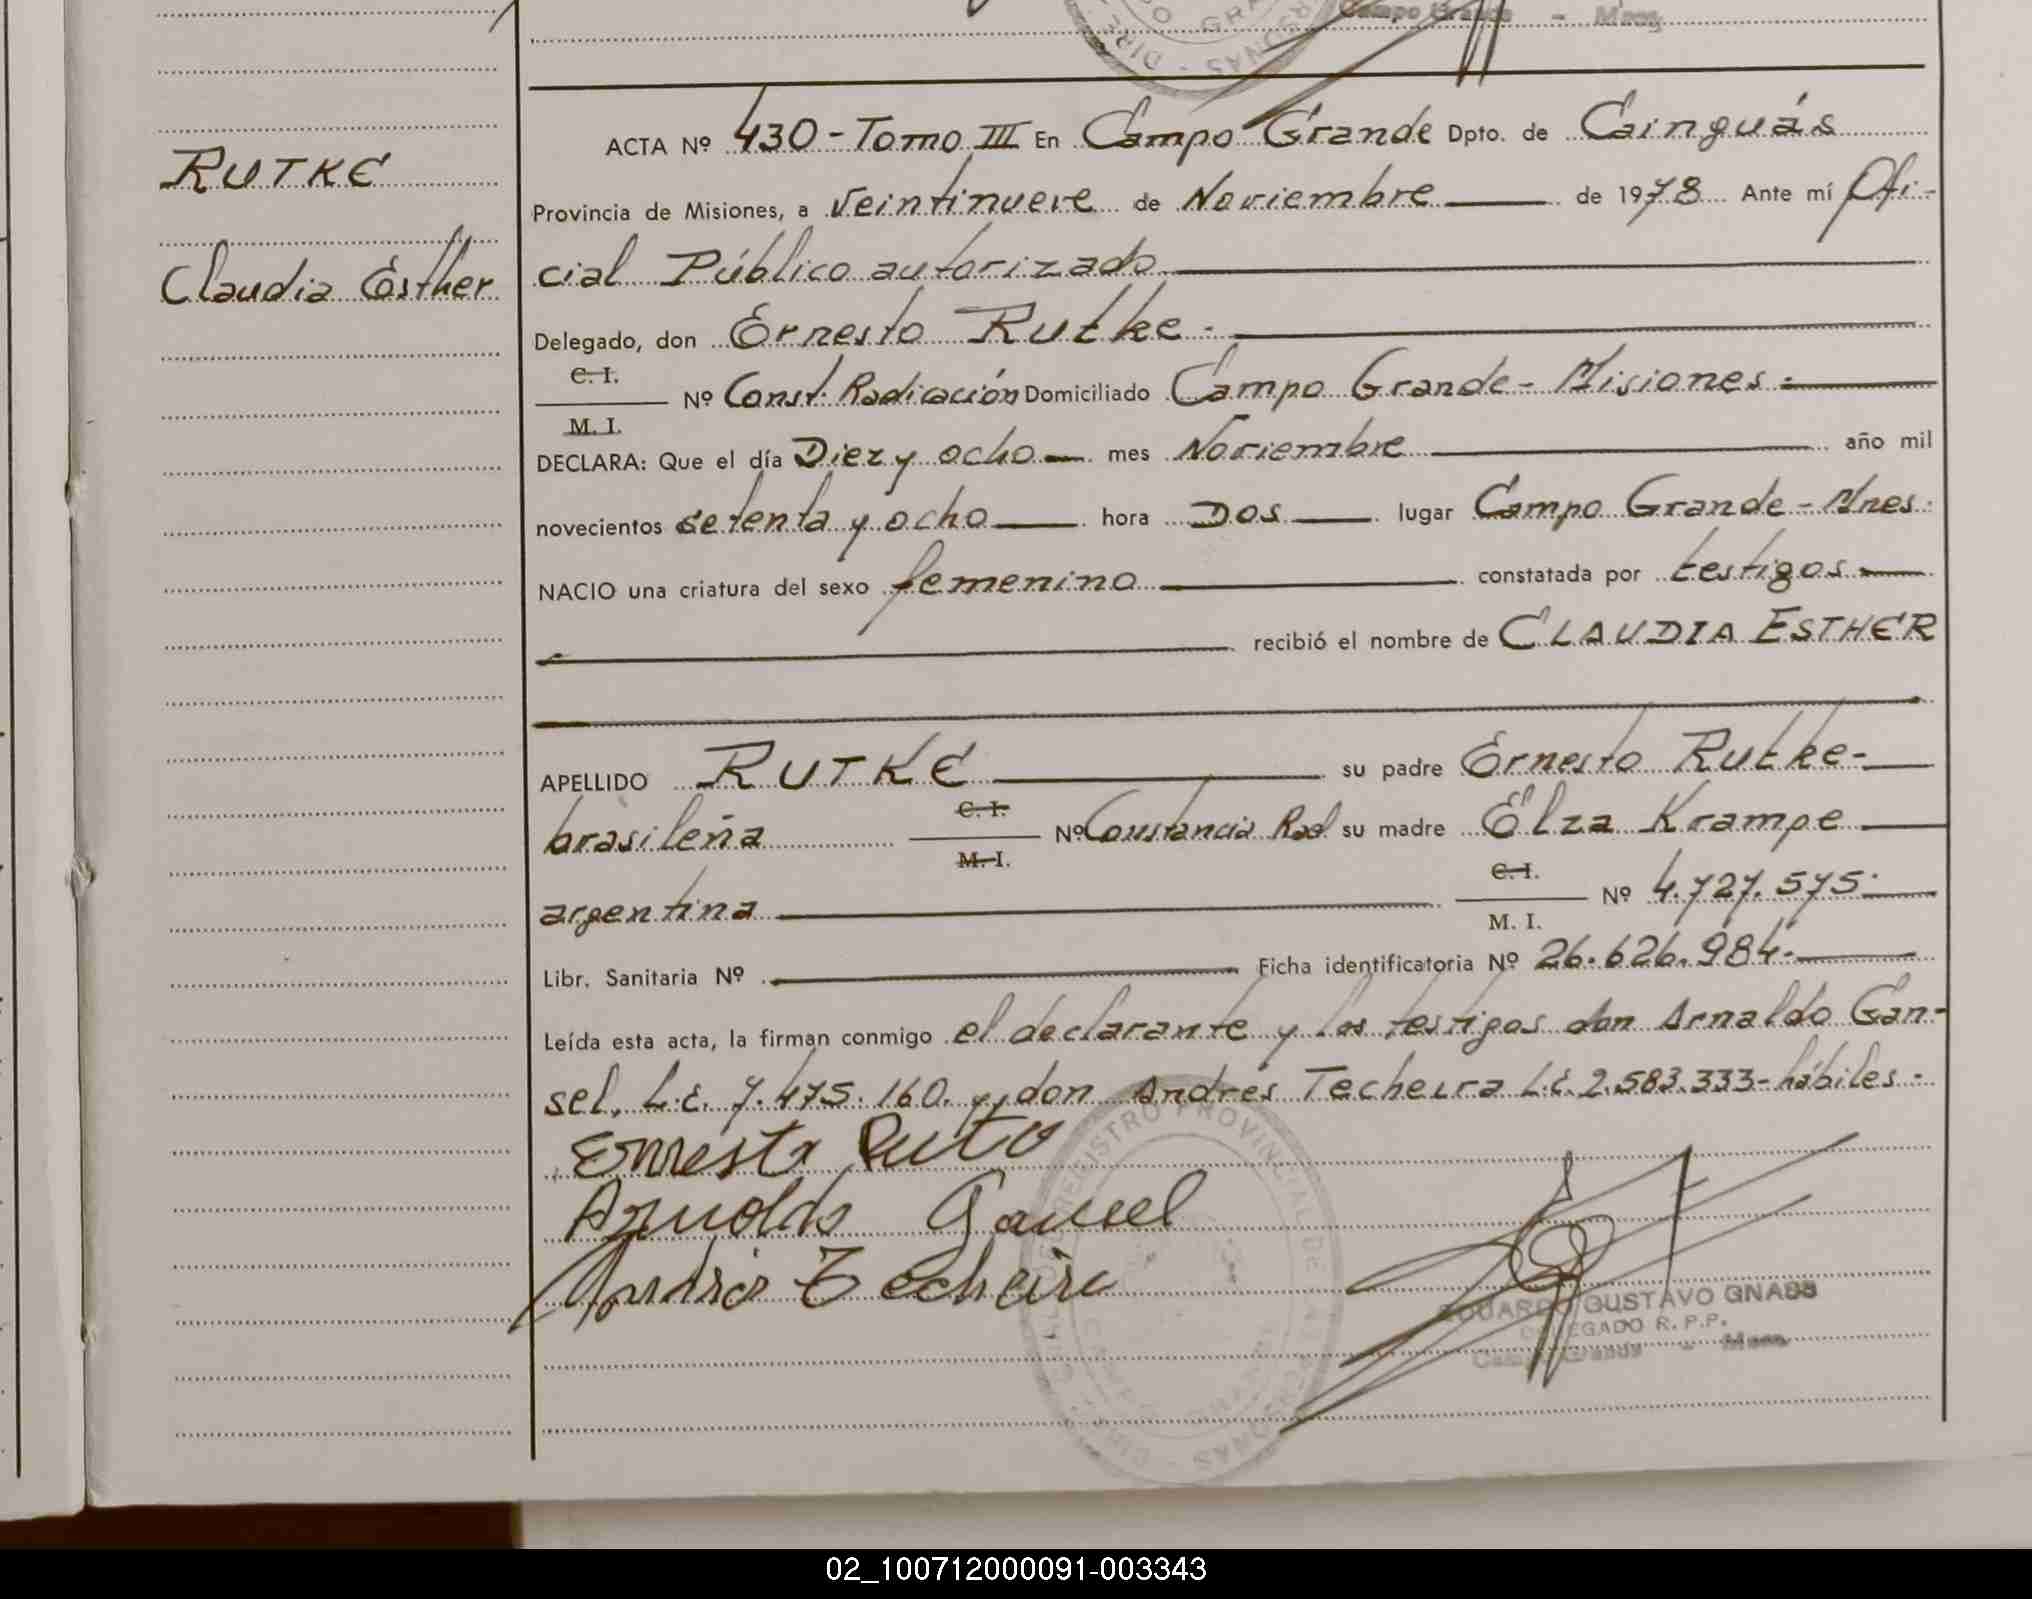 Campo Grande - Mnes.
RUTKE
Claudia Esther
ACTA Nº 430 - Tomo III En Campo Grande Dpto. de Cainguás
Provincia de Misiones, a veintinueve de Noviembre de 1978 Ante mí Ofi-
cial Público autorizado
Delegado, don Ernesto Rutke.-
C. I.
Nº Const. Radicación Domiciliado Campo Grande - Misiones.-
M. I.
DECLARA: Que el día Diez y ocho mes Noviembre año mil
novecientos setenta y ocho hora Dos lugar Campo Grande - Mnes.
NACIO una criatura del sexo femenino constatada por testigos
recibió el nombre de CLAUDIA ESTHER
APELLIDO RUTKE su padre Ernesto Rutke-
C. I.
brasileña Nº Constancia Rad. su madre Elza Krampe
M. I.
C. I.
argentina Nº 4.727.575.
M. I.
Libr. Sanitaria Nº Ficha identificatoria Nº 26.626.984.-
Leída esta acta, la firman conmigo el declarante y los testigos don Arnaldo Gan-
sel, L.E. 7.475.160. y don Andrés Techeira L.E. 2.583.333- hábiles.-
Ernesto
Arnoldo Gansel
Techeira
REGISTRO PROVINCIAL DE LAS PERSONAS
CAMPO GRANDE
EDUARDO GUSTAVO GNASS
DELEGADO R. P. P.
Campo Grande - Mnes.
02_100712000091-003343